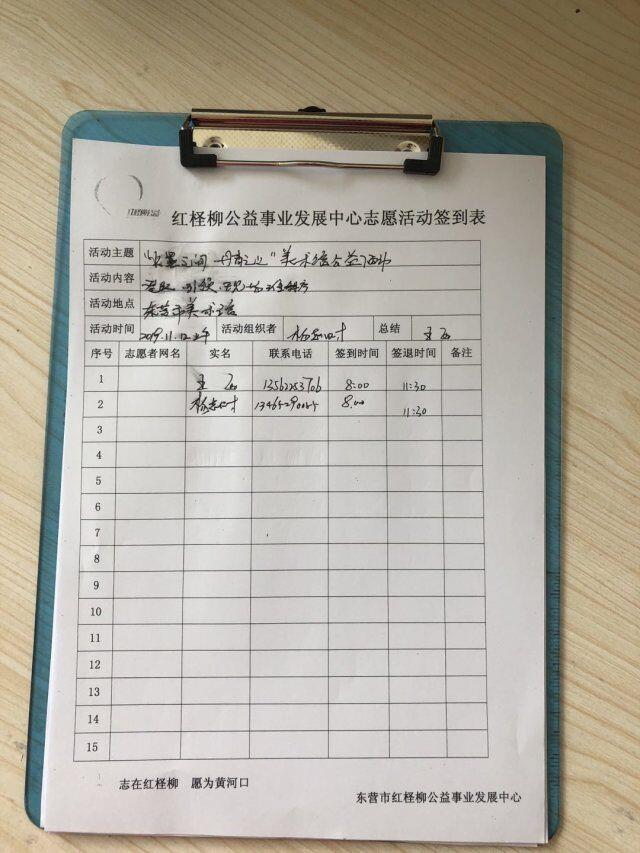 红柽柳公益事业发展中心志愿活动签到表
活动主题 "水墨之间 丹青之上"美术
活动内容
活动地点 东营市美术馆
活动时间 2019.11.12上午 活动组织者 总结 王
序号 志愿者网名 实名 联系电话 签到时间 签退时间 备注
1 王 13562253706 8:00 11:30
2 杨 8:00 11:30
3
4
5
6
7
8
9
10
11
12
13
14
15
志在红柽柳 愿为黄河口
东营市红柽柳公益事业发展中心